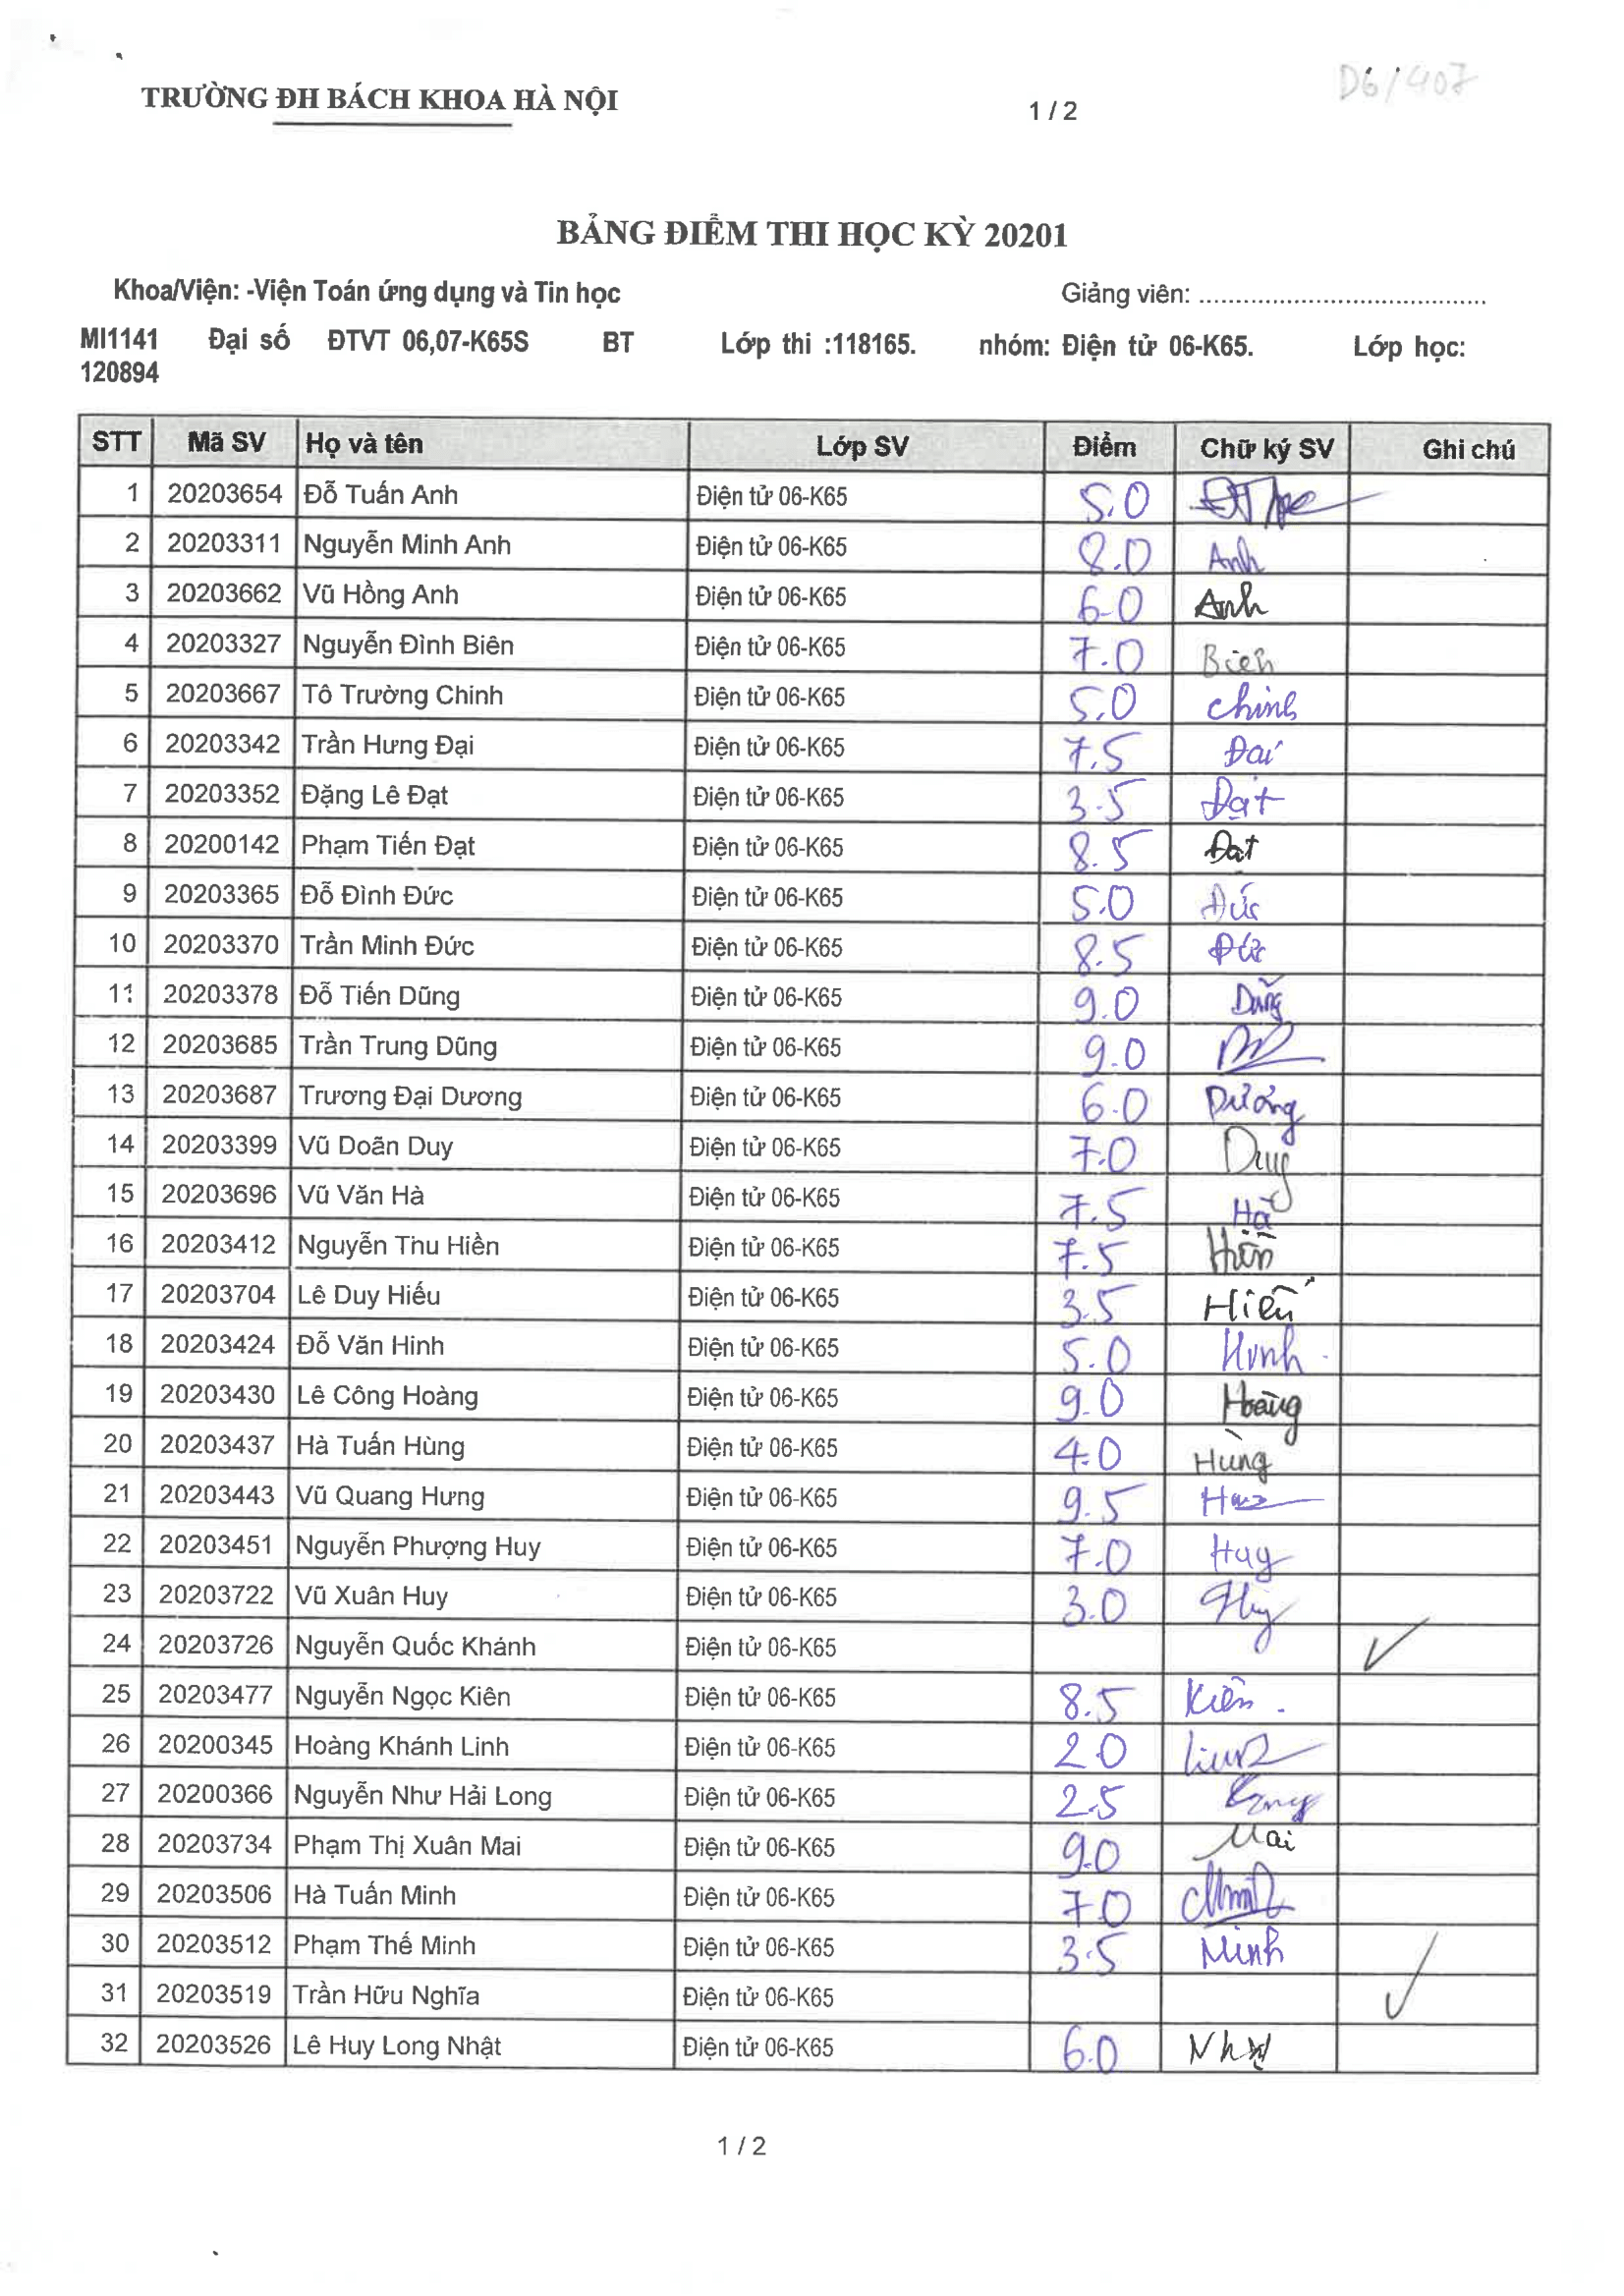 D6/407
TRƯỜNG ĐH BÁCH KHOA HÀ NỘI 1 / 2
BẢNG ĐIỂM THI HỌC KỲ 20201
Khoa/Viện: -Viện Toán ứng dụng và Tin học Giảng viên: ......................................
MI1141 Đại số ĐTVT 06,07-K65S BT Lớp thi :118165. nhóm: Điện tử 06-K65. Lớp học:
120894
STT Mã SV Họ và tên Lớp SV Điểm Chữ ký SV Ghi chú
1 20203654 Đỗ Tuấn Anh Điện tử 06-K65 5.0
2 20203311 Nguyễn Minh Anh Điện tử 06-K65 8.0 Anh
3 20203662 Vũ Hồng Anh Điện tử 06-K65 6.0 Anh
4 20203327 Nguyễn Đình Biên Điện tử 06-K65 7.0 Biên
5 20203667 Tô Trường Chinh Điện tử 06-K65 5.0 chinh
6 20203342 Trần Hưng Đại Điện tử 06-K65 7.5 Đại
7 20203352 Đặng Lê Đạt Điện tử 06-K65 3.5 Đạt
8 20200142 Phạm Tiến Đạt Điện tử 06-K65 8.5 Đạt
9 20203365 Đỗ Đình Đức Điện tử 06-K65 5.0 Đức
10 20203370 Trần Minh Đức Điện tử 06-K65 8.5 Đức
11 20203378 Đỗ Tiến Dũng Điện tử 06-K65 9.0 Dũng
12 20203685 Trần Trung Dũng Điện tử 06-K65 9.0
13 20203687 Trương Đại Dương Điện tử 06-K65 6.0 Dương
14 20203399 Vũ Doãn Duy Điện tử 06-K65 7.0 Duy
15 20203696 Vũ Văn Hà Điện tử 06-K65 7.5 Hà
16 20203412 Nguyễn Thu Hiền Điện tử 06-K65 7.5 Hiền
17 20203704 Lê Duy Hiếu Điện tử 06-K65 3.5 Hiếu
18 20203424 Đỗ Văn Hinh Điện tử 06-K65 5.0 Hinh
19 20203430 Lê Công Hoàng Điện tử 06-K65 9.0 Hoàng
20 20203437 Hà Tuấn Hùng Điện tử 06-K65 4.0 Hùng
21 20203443 Vũ Quang Hưng Điện tử 06-K65 9.5
22 20203451 Nguyễn Phượng Huy Điện tử 06-K65 7.0 Huy
23 20203722 Vũ Xuân Huy Điện tử 06-K65 3.0 Huy
24 20203726 Nguyễn Quốc Khánh Điện tử 06-K65 ✓
25 20203477 Nguyễn Ngọc Kiên Điện tử 06-K65 8.5 Kiên.
26 20200345 Hoàng Khánh Linh Điện tử 06-K65 2.0
27 20200366 Nguyễn Như Hải Long Điện tử 06-K65 2.5 Long
28 20203734 Phạm Thị Xuân Mai Điện tử 06-K65 9.0 Mai
29 20203506 Hà Tuấn Minh Điện tử 06-K65 7.0
30 20203512 Phạm Thế Minh Điện tử 06-K65 3.5 Minh
31 20203519 Trần Hữu Nghĩa Điện tử 06-K65 ✓
32 20203526 Lê Huy Long Nhật Điện tử 06-K65 6.0 Nhật
1 / 2